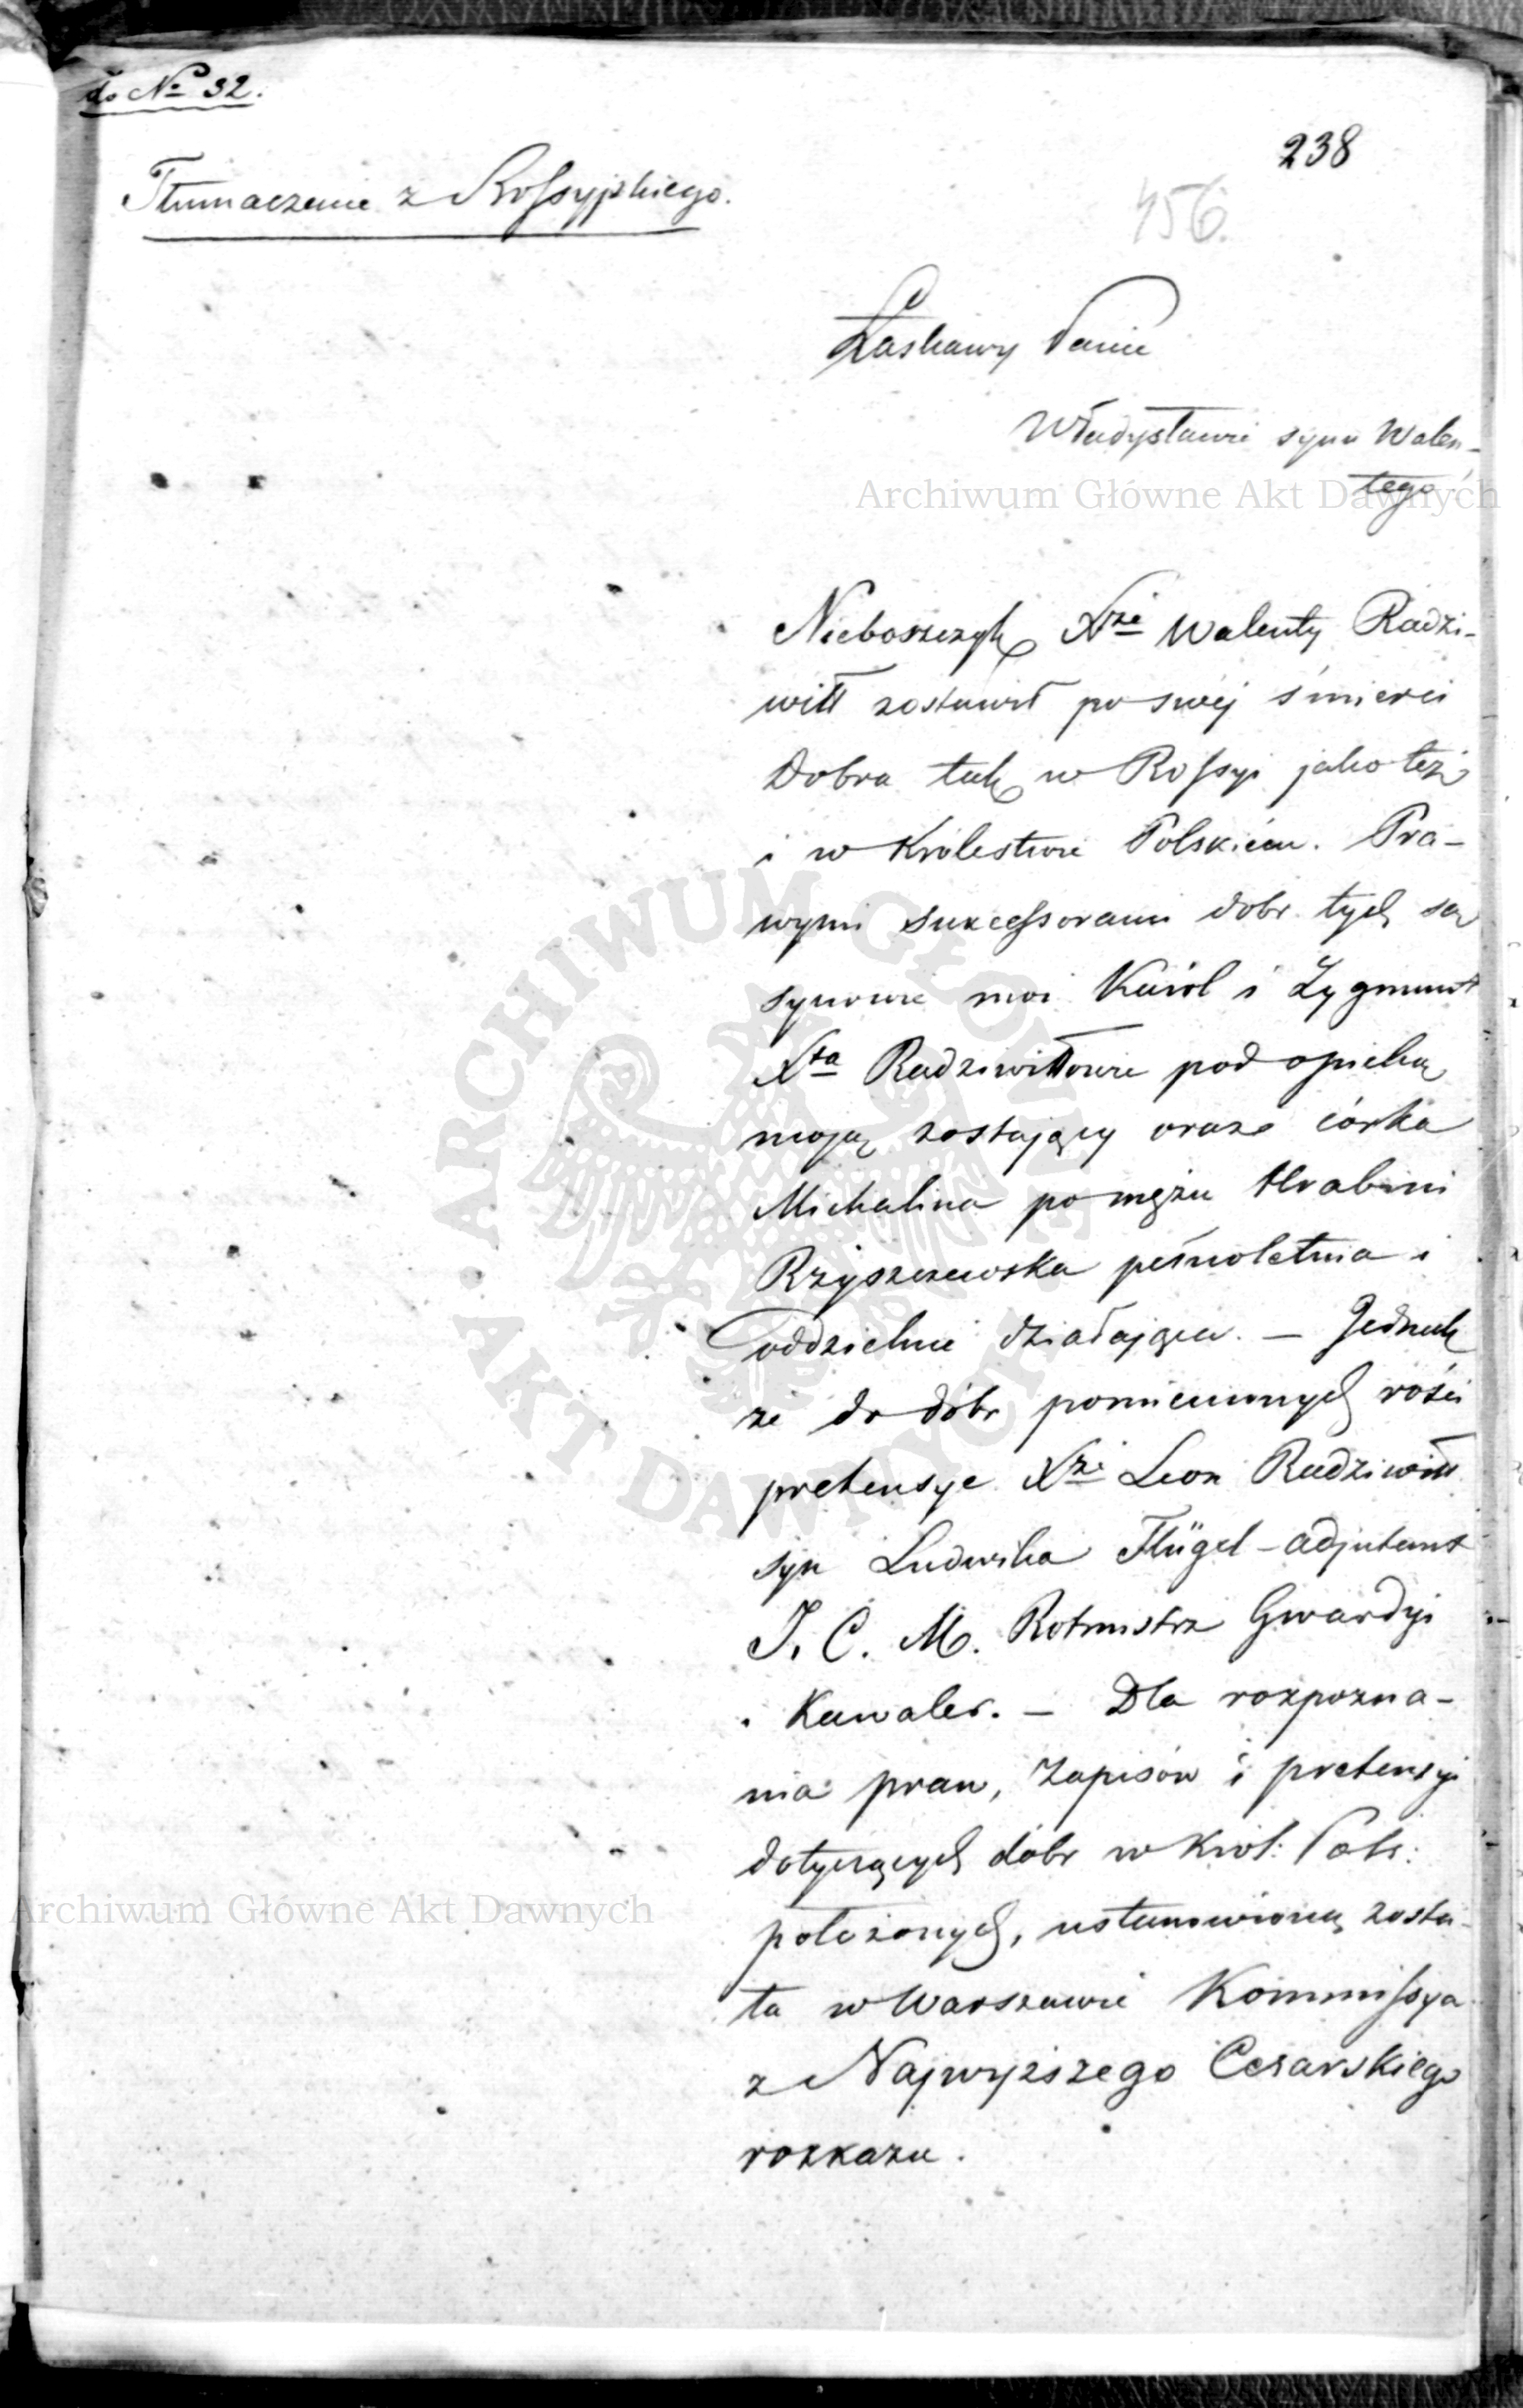 do No 32.
238
Tłumaczenie z Rossyjskiego.
456.
Łaskawy Panie
Władysławie synu Walen-
tego
Archiwum Główne Akt Dawnych
Nieboszczyk Xże Walenty Radzi-
wiłł zostawił po swéj śmierci
Dobra tak w Rossyi jako też
i w Królestwie Polskiém. Pra-
wymi sukcessorami dobr tych są
synowie moi Karol i Zygmunt
Xta Radziwiłłowie pod opieką
moją zostający oraz córka
Michalina po mężu Hrabini
Rzyszczewska pełnoletnia i
oddzielnie działająca. — Jednak
że do dóbr pomienionych rości
pretensye Xże Leon Radziwiłł
syn Ludwika Flügel-adjutant
J. C. M. Rotmistrz Gwardyi
i Kawaler. — Dla rozpozna-
nia praw, zapisów i pretensyi
dotyczących dóbr w Król: Pols:
położonych, ustanowioną zosta-
ła w Warszawie Kommissya
z Najwyższego Cesarskiego
rozkazu.
Archiwum Główne Akt Dawnych
ARCHIWUM GŁÓWNE AKT DAWNYCH